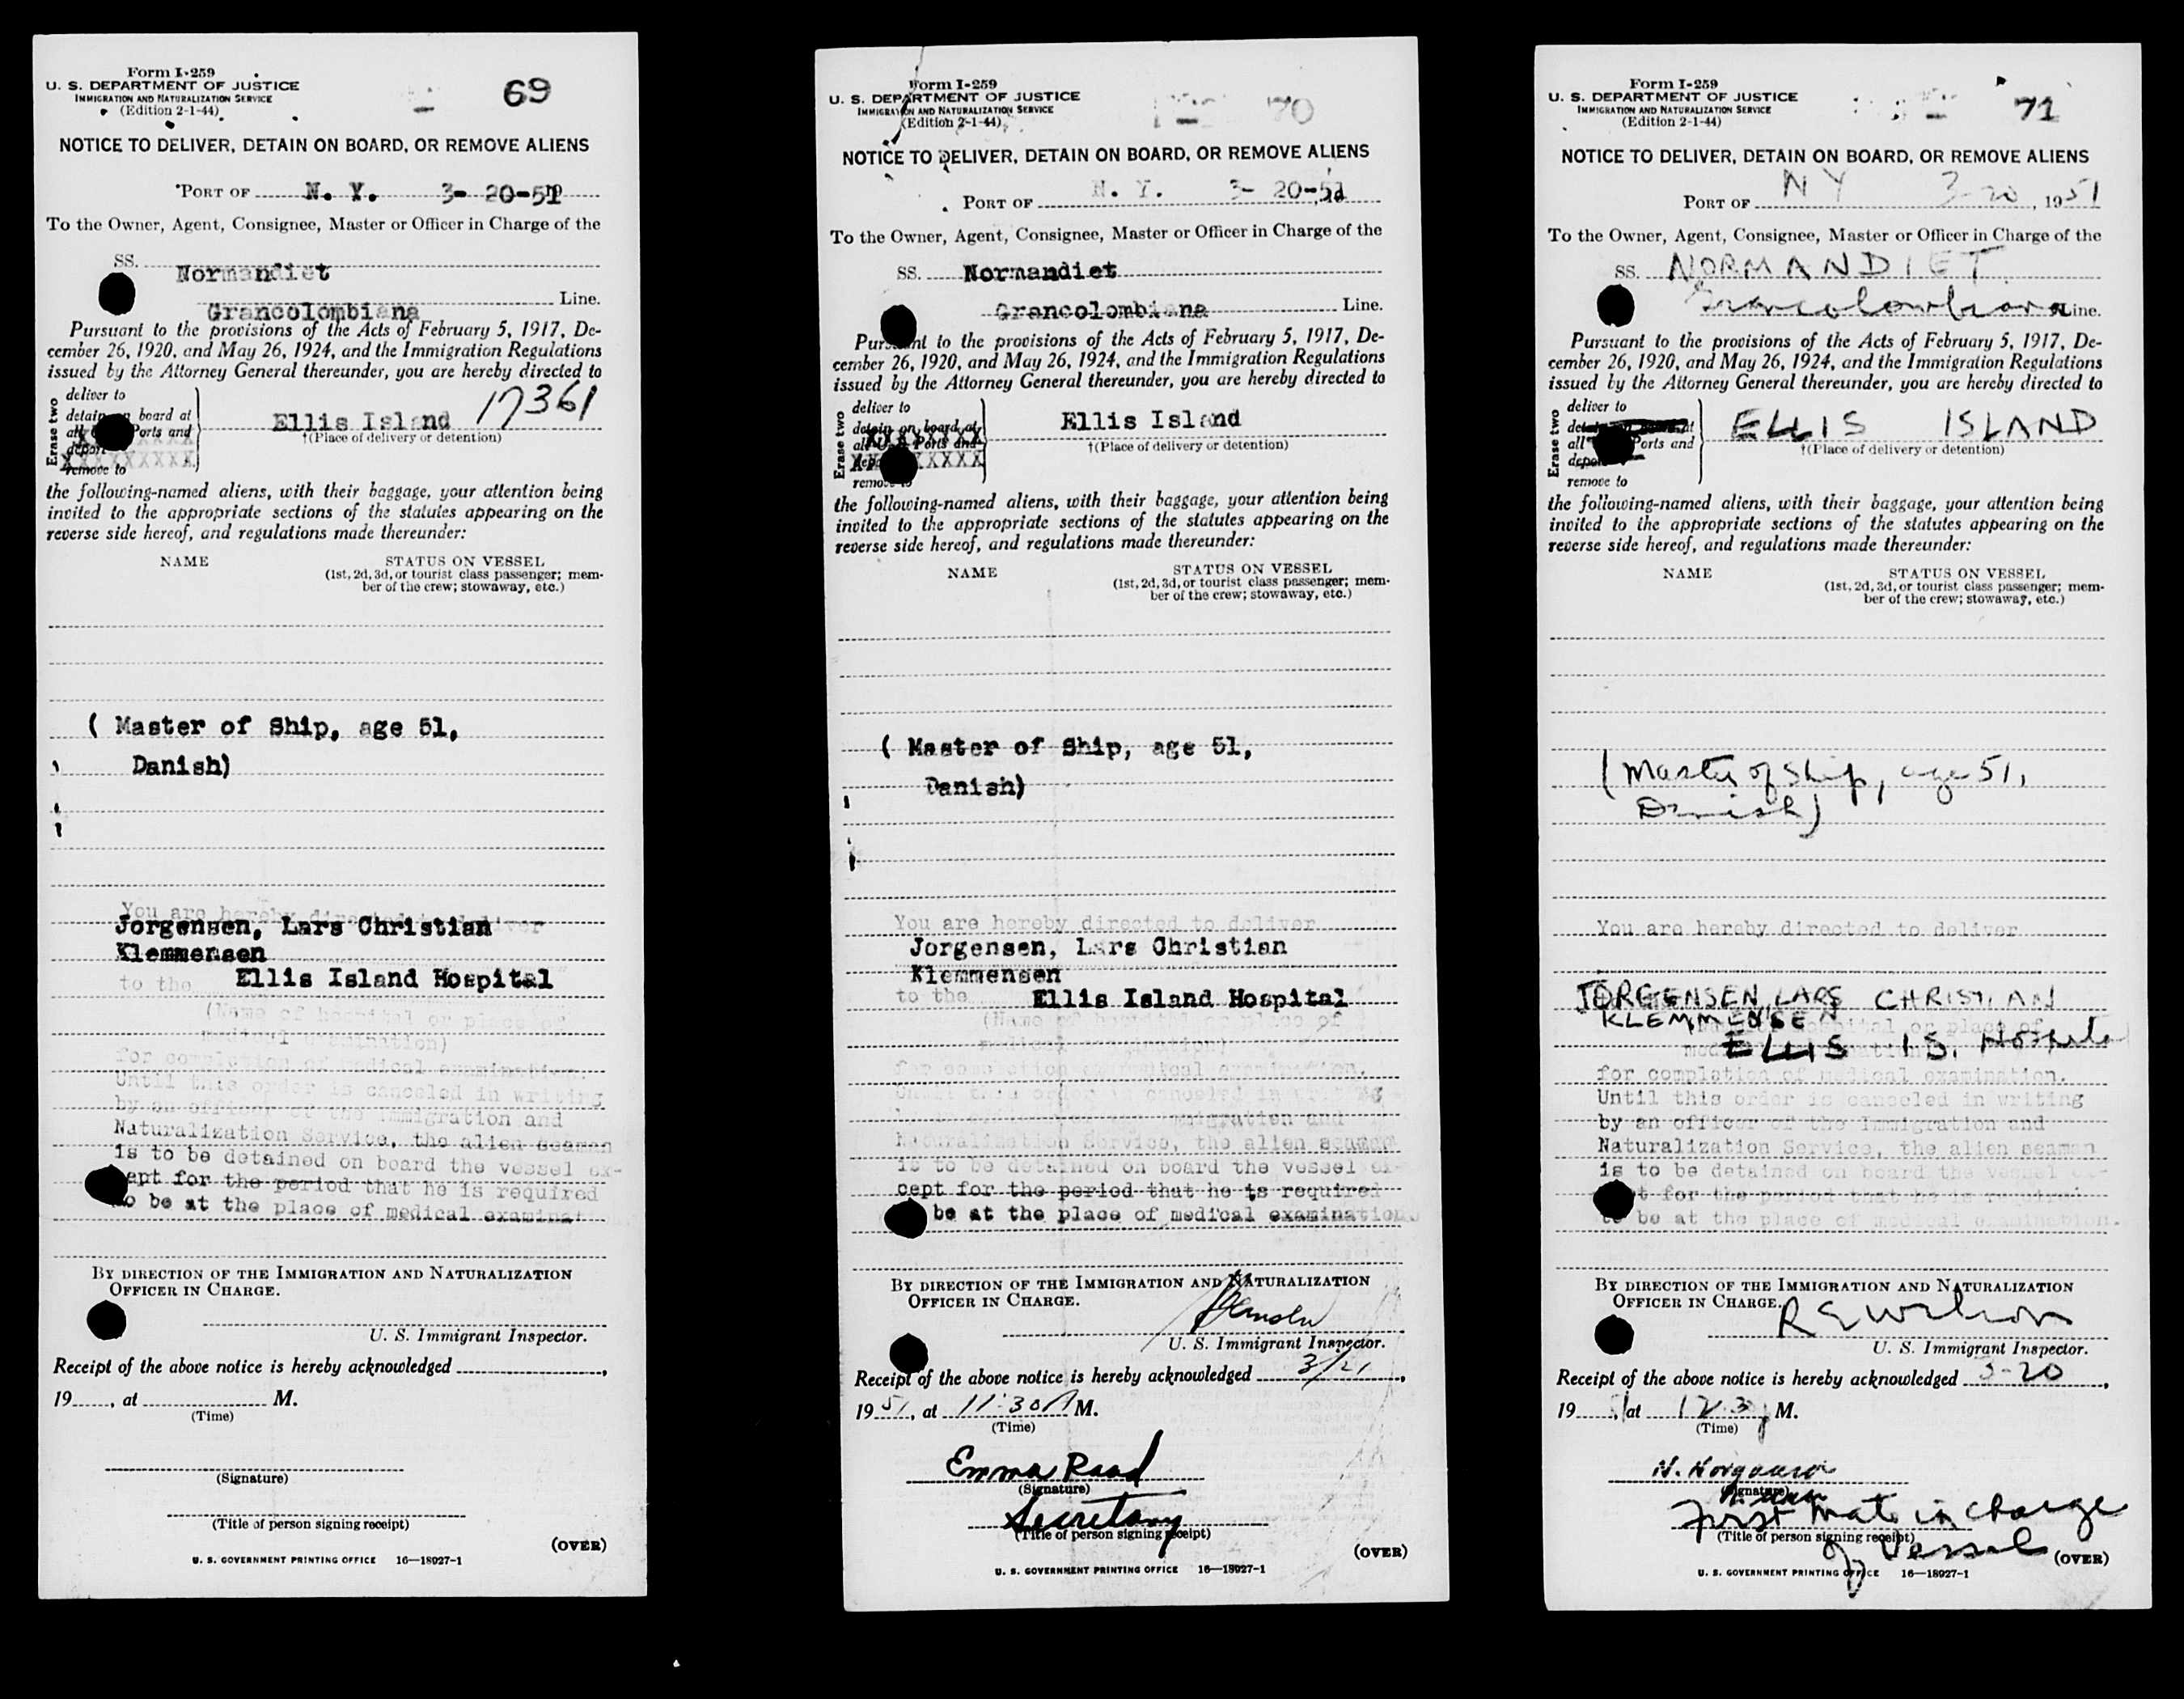 Form I-259
U. S. DEPARTMENT OF JUSTICE
IMMIGRATION AND NATURALIZATION SERVICE
(Edition 2-1-44)
69
NOTICE TO DELIVER, DETAIN ON BOARD, OR REMOVE ALIENS
PORT OF N. Y. 3- 20-51
To the Owner, Agent, Consignee, Master or Officer in Charge of the
SS. Normandiet
Grancolombiana Line.
Pursuant to the provisions of the Acts of February 5, 1917, De-
cember 26, 1920, and May 26, 1924, and the Immigration Regulations
issued by the Attorney General thereunder, you are hereby directed to
Erase two
deliver to
detain on board at
all Ports and
deport
remove to
Ellis Island 17361
†(Place of delivery or detention)
the following-named aliens, with their baggage, your attention being
invited to the appropriate sections of the statutes appearing on the
reverse side hereof, and regulations made thereunder:
NAME STATUS ON VESSEL
(1st, 2d, 3d, or tourist class passenger; mem-
ber of the crew; stowaway, etc.)
( Master of Ship, age 51,
Danish)
You are hereby directed to deliver
Jorgensen, Lars Christian
Klemmensen
to the Ellis Island Hospital
(Name of hospital or place of
medical examination)
for completion of medical examination.
Until this order is canceled in writing
by an officer of the Immigration and
Naturalization Service, the alien seaman
is to be detained on board the vessel ex-
cept for the period that he is required
to be at the place of medical examinat
BY DIRECTION OF THE IMMIGRATION AND NATURALIZATION
OFFICER IN CHARGE.
U. S. Immigrant Inspector.
Receipt of the above notice is hereby acknowledged ,
19 , at M.
(Time)
(Signature)
(Title of person signing receipt)
(OVER)
U. S. GOVERNMENT PRINTING OFFICE 16—18027-1
Form I-259
U. S. DEPARTMENT OF JUSTICE
IMMIGRATION AND NATURALIZATION SERVICE
(Edition 2-1-44)
70
NOTICE TO DELIVER, DETAIN ON BOARD, OR REMOVE ALIENS
PORT OF N. Y. 3- 20-51
To the Owner, Agent, Consignee, Master or Officer in Charge of the
SS. Normandiet
Grancolombiana Line.
Pursuant to the provisions of the Acts of February 5, 1917, De-
cember 26, 1920, and May 26, 1924, and the Immigration Regulations
issued by the Attorney General thereunder, you are hereby directed to
Erase two
deliver to
detain on board at
all U. S. Ports and
deport
remove to
Ellis Island
†(Place of delivery or detention)
the following-named aliens, with their baggage, your attention being
invited to the appropriate sections of the statutes appearing on the
reverse side hereof, and regulations made thereunder:
NAME STATUS ON VESSEL
(1st, 2d, 3d, or tourist class passenger; mem-
ber of the crew; stowaway, etc.)
( Master of Ship, age 51,
Danish)
You are hereby directed to deliver
Jorgensen, Lars Christian
Klemmensen
to the Ellis Island Hospital
(Name of hospital or place of
medical examination)
for completion of medical examination.
Until this order is canceled in writing
by an officer of the Immigration and
Naturalization Service, the alien seaman
is to be detained on board the vessel ex-
cept for the period that he is required
be at the place of medical examination
BY DIRECTION OF THE IMMIGRATION AND NATURALIZATION
OFFICER IN CHARGE.
U. S. Immigrant Inspector.
Receipt of the above notice is hereby acknowledged 3/21,
1951, at 11:30 A M.
(Time)
Emma Raad
(Signature)
Secretary
(Title of person signing receipt)
(OVER)
U. S. GOVERNMENT PRINTING OFFICE 16—18027-1
Form I-259
U. S. DEPARTMENT OF JUSTICE
IMMIGRATION AND NATURALIZATION SERVICE
(Edition 2-1-44)
71
NOTICE TO DELIVER, DETAIN ON BOARD, OR REMOVE ALIENS
PORT OF N Y 3-20, 1951
To the Owner, Agent, Consignee, Master or Officer in Charge of the
SS. NORMANDIET
Grancolombiana Line.
Pursuant to the provisions of the Acts of February 5, 1917, De-
cember 26, 1920, and May 26, 1924, and the Immigration Regulations
issued by the Attorney General thereunder, you are hereby directed to
Erase two
deliver to
detain on board at
all Ports and
deport
remove to
ELLIS ISLAND
†(Place of delivery or detention)
the following-named aliens, with their baggage, your attention being
invited to the appropriate sections of the statutes appearing on the
reverse side hereof, and regulations made thereunder:
NAME STATUS ON VESSEL
(1st, 2d, 3d, or tourist class passenger; mem-
ber of the crew; stowaway, etc.)
(Master of Ship, age 51,
Danish)
You are hereby directed to deliver
JORGENSEN, LARS CHRISTIAN
KLEMMENSEN
ELLIS IS. Hospital
for completion of medical examination.
Until this order is canceled in writing
by an officer of the Immigration and
Naturalization Service, the alien seaman
is to be detained on board the vessel ex-
t for the period that he is required
to be at the place of medical examination.
BY DIRECTION OF THE IMMIGRATION AND NATURALIZATION
OFFICER IN CHARGE.
R E Wilson
U. S. Immigrant Inspector.
Receipt of the above notice is hereby acknowledged 3-20,
1951, at 12 3 M.
(Time)
(Signature)
First mate in charge
(Title of person signing receipt)
of vessel
(OVER)
U. S. GOVERNMENT PRINTING OFFICE 16—18027-1